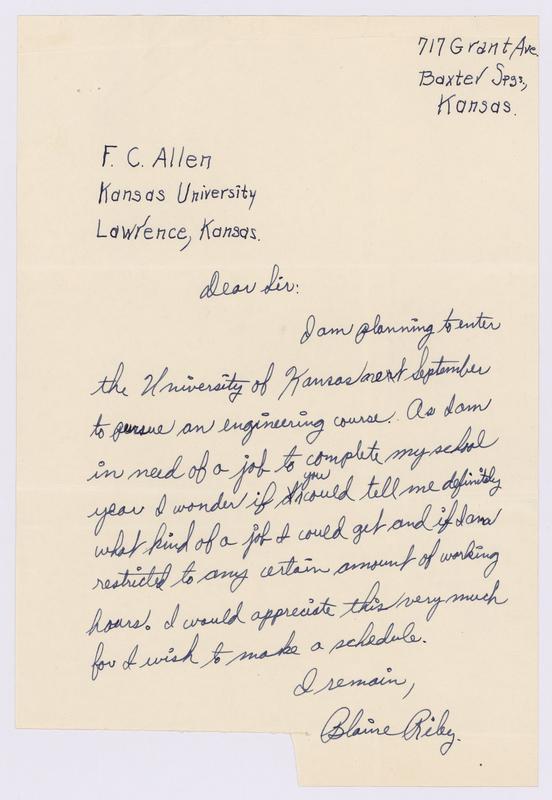 717 Grant Ave.
Baxter Spgs.,
Kansas.
F. C. Allen
Kansas University
Lawrence, Kansas.
Dear Sir:
I am planning to enter
the University of Kansas next September
to pursue an engineering course. As I am
in need of a job to complete my school
year I wonder if you could tell me definitely
what kind of a job I could get and if I am
restricted to any certain amount of working
hours. I would appreciate this very much
for I wish to make a schedule.
I remain,
Blaine Riley.